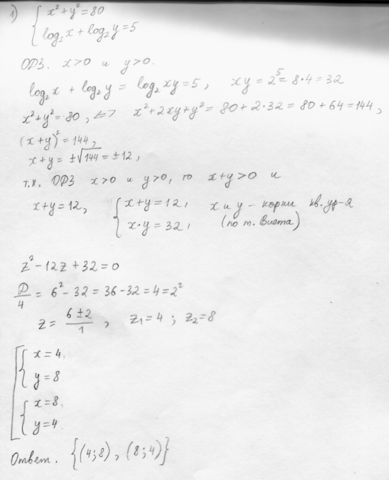 1) { x² + y² = 80
log₂x + log₂y = 5
ОДЗ. x>0 и y>0.
log₂x + log₂y = log₂xy = 5, xy = 2⁵ = 8·4 = 32
x²+y² = 80, <=> x²+2xy+y² = 80+2·32 = 80+64 = 144,
(x+y)² = 144,
x+y = ±√144 = ±12,
т.к. ОДЗ x>0 и y>0, то x+y>0 и
x+y = 12, { x+y = 12, x и y - корни кв. ур-я
x·y = 32, (по т. Виета)
z² - 12z + 32 = 0
D/4 = 6² - 32 = 36 - 32 = 4 = 2²
z = (6 ± 2)/1, z₁ = 4 ; z₂ = 8
[ { x = 4.
y = 8
{ x = 8.
y = 4.
Ответ. {(4;8), (8;4)}